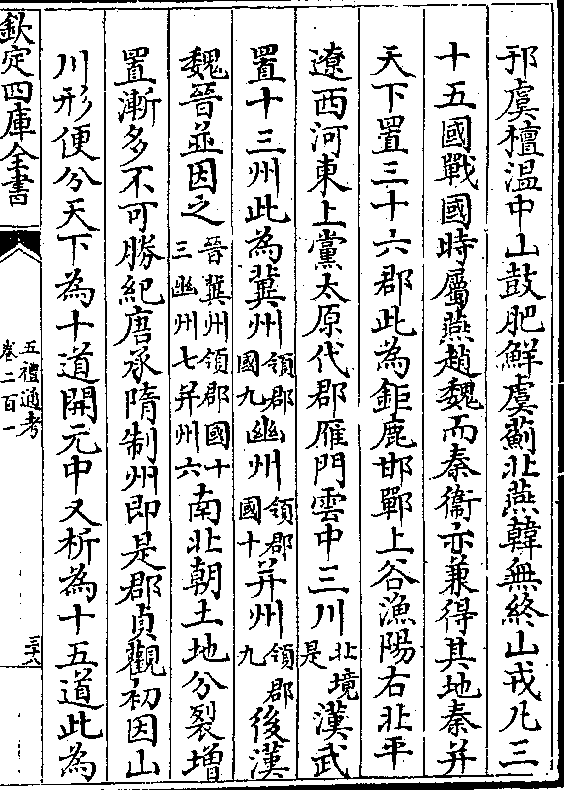 邗虞檀溫中山鼓肥鮮虞薊北燕韓無終山戎凡三
十五國戰國時屬燕趙魏而秦衞亦兼得其地秦并
天下置三十六郡此為鉅鹿邯鄲上谷漁陽右北平
遼西河東上黨太原代郡雁門雲中三川北境是漢武
置十三州此為冀州領郡國九幽州領郡國十并州領郡九後漢
魏晉並因之晉冀州領郡國十三幽州七并州六南北朝土地分裂增
置漸多不可勝紀唐承隋制州即是郡貞觀初因山
川形便分天下為十道開元中又析為十五道此為
欽定四庫全書
五禮通考
卷二百一
三六